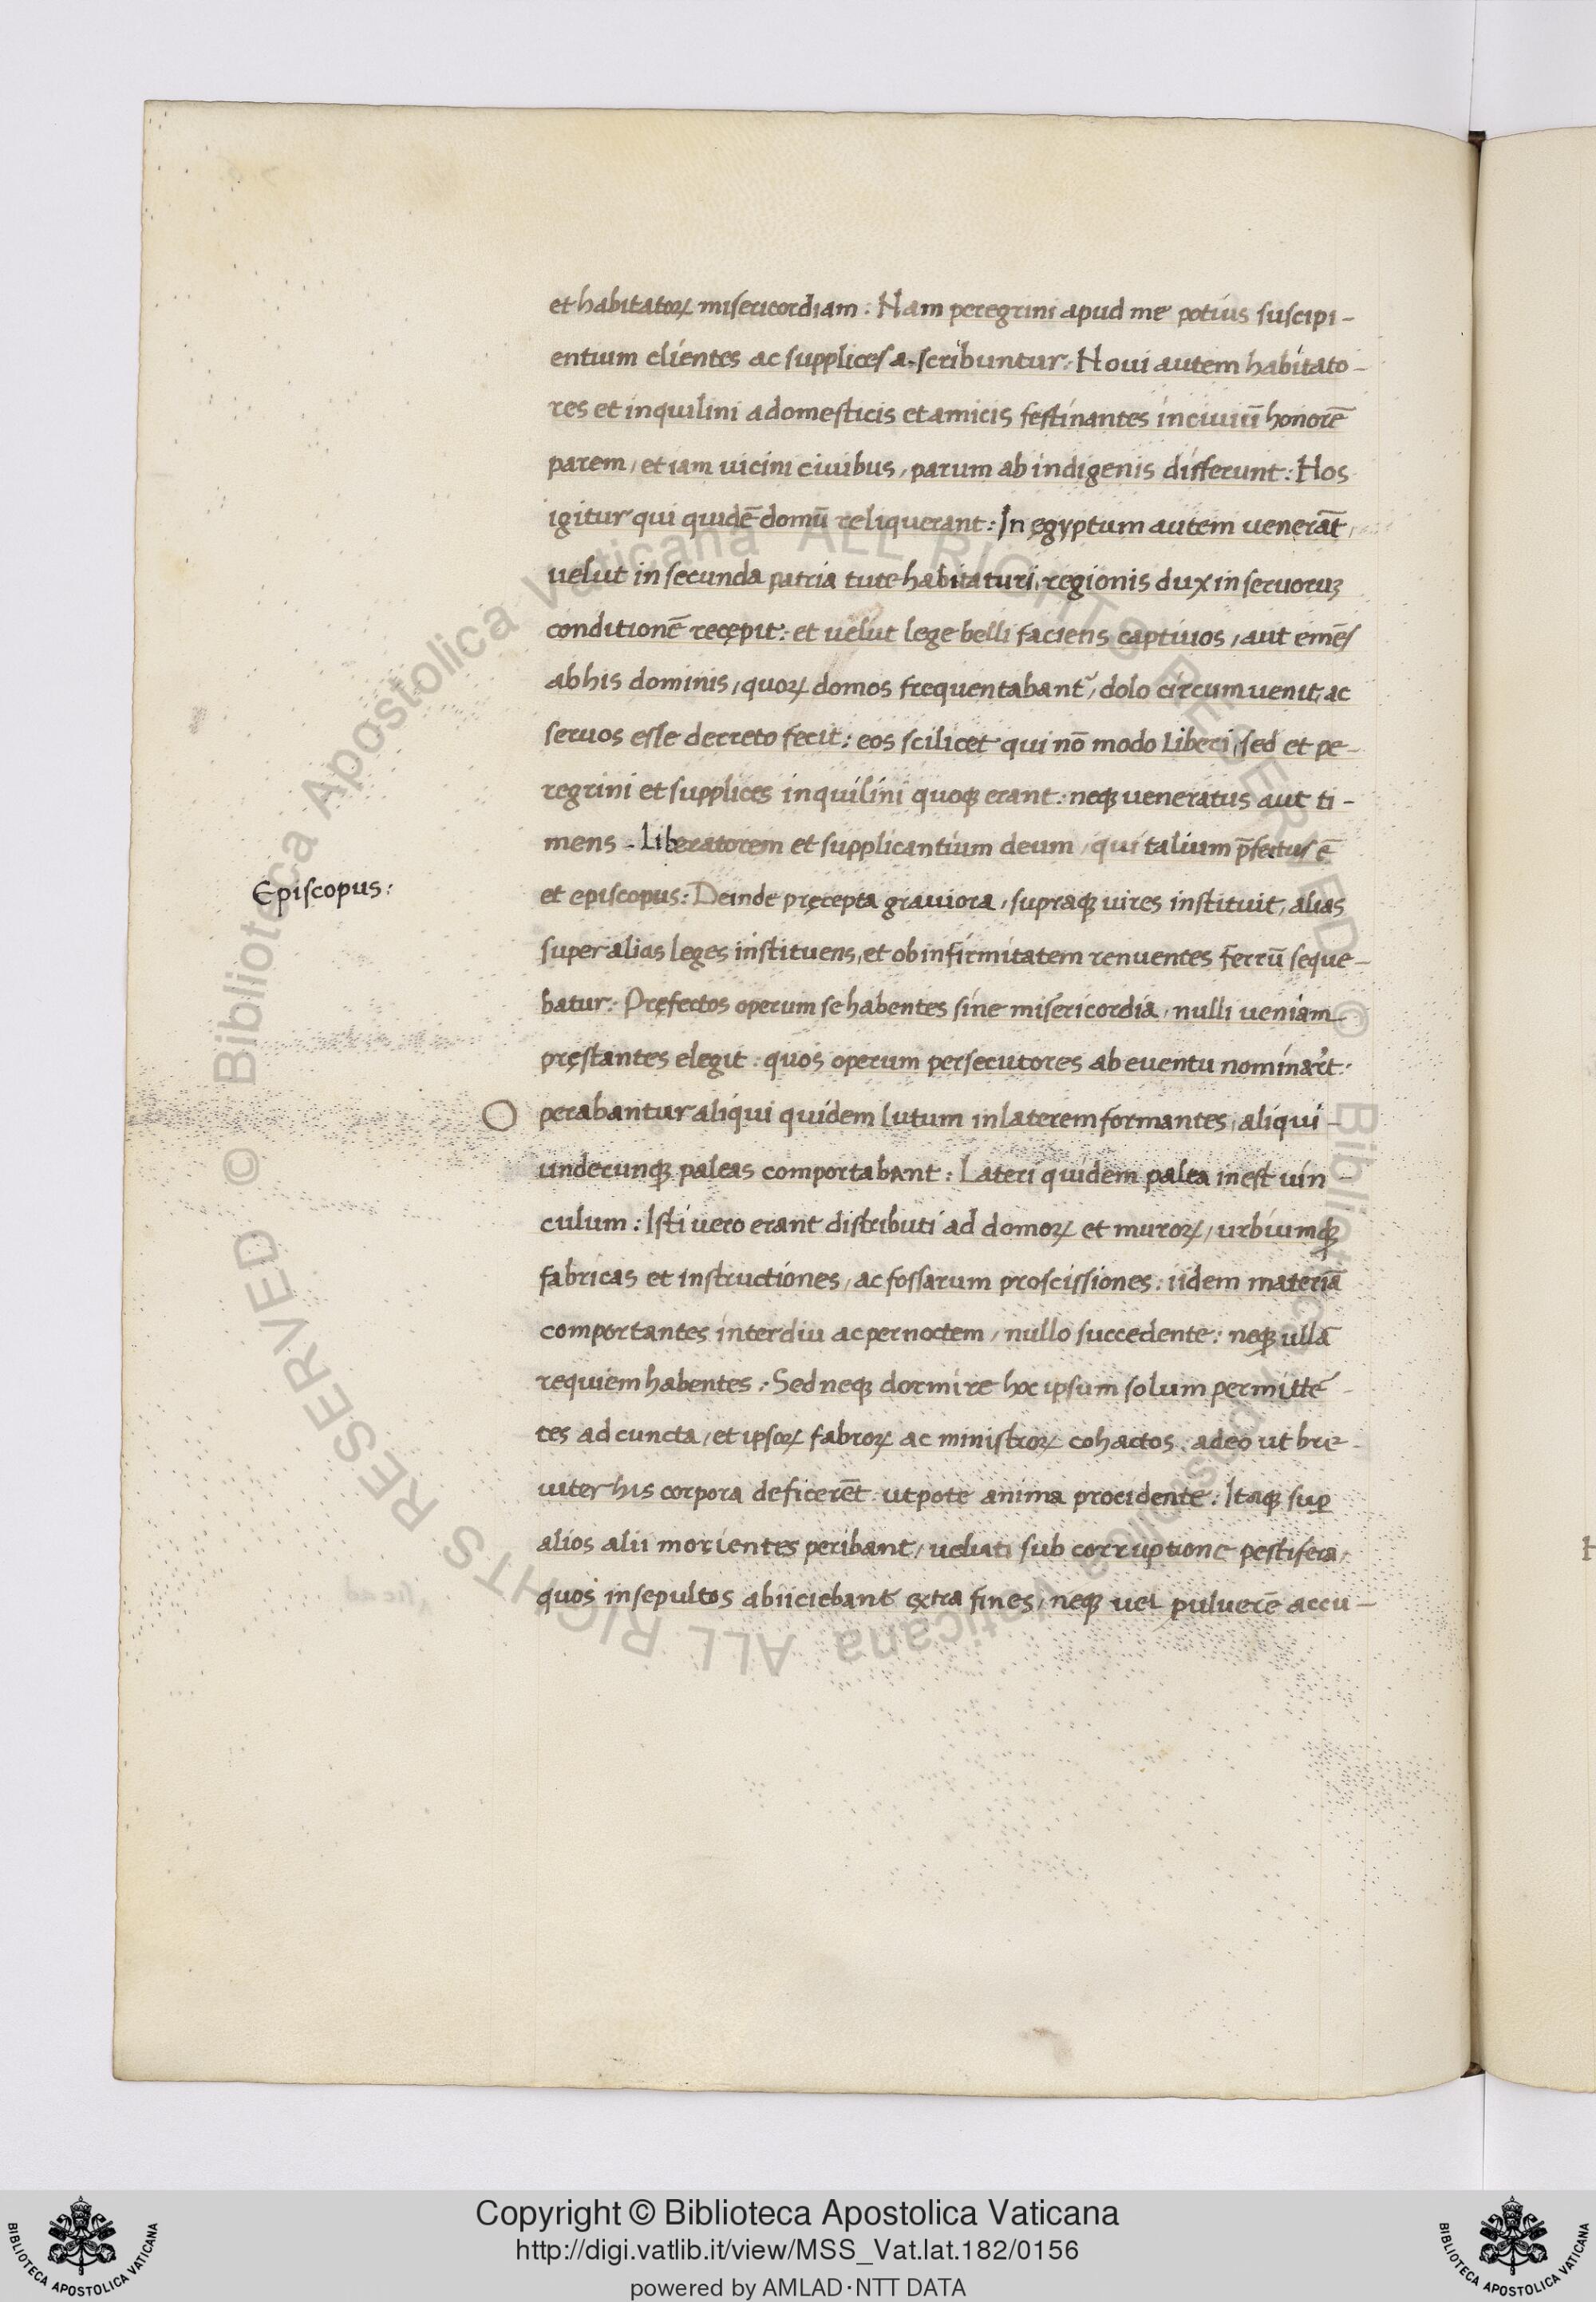 et habitatoꝝ misericordiam : Nam peregrini apud me potius suscipi-
entium clientes ac supplices a.scribuntur : Noui autem habitato-
res et inquilini a domesticis et amicis festinantes in ciuiū honorē
parem, et iam uicini ciuibus, parum ab indigenis differunt : Hos
igitur qui quidē domū reliquerant : In ęgyptum autem uenerāt,
uelut in secunda patria tute habitaturi, regionis dux in seruoruꝫ
conditionē recępit : et uelut lege belli faciens captiuos, aut emēs
ab his dominis, quoꝝ domos frequentabant, dolo circumuenit, ac
seruos esse decreto fecit : eos scilicet qui nō modo liberi, sed et pe-
regrini et supplices inquilini quoqꝫ erant : neqꝫ ueneratus aut ti-
mens . Liberatorem et supplicantium deum, qui talium p̄fectus ē
Episcopus :
et episcopus : Deinde pręcepta grauiora, supraqꝫ uires instituit, alias
super alias leges instituens, et ob infirmitatem renuentes ferrū seque-
batur : Pręfectos operum se habentes sine misericordia, nulli ueniam
pręstantes elegit : quos operum persecutores ab euentu nominar̄t :
O perabantur aliqui quidem lutum in laterem formantes, aliqui -
undecunqꝫ paleas comportabant : Lateri quidem palea inest uin -
culum : Isti uero erant distributi ad domoꝝ et muroꝝ, urbiumqꝫ
fabricas et instructiones, ac fossarum proscissiones : iidem materiā
comportantes interdiu ac per noctem, nullo succedente : neqꝫ ullā
requiem habentes : Sed neqꝫ dormire hoc ipsum solum permittē-
tes ad cuncta, et ipsoꝝ fabroꝝ ac ministroꝝ cohactos : adeo ut bre-
uiter his corpora deficerēt : utpote anima procidente : Itaqꝫ suꝑ
alios alii morientes peribant, ueluti sub corruptione pestifera,
quos insepultos abiiciebant extra fines, neqꝫ uel puluerē accu-
© Biblioteca Apostolica Vaticana ALL RIGHTS RESERVED © Biblioteca Apostolica Vaticana ALL RIGHTS RESERVED
Copyright © Biblioteca Apostolica Vaticana
http://digi.vatlib.it/view/MSS_Vat.lat.182/0156
powered by AMLAD·NTT DATA
BIBLIOTECA APOSTOLICA VATICANA
BIBLIOTECA APOSTOLICA VATICANA